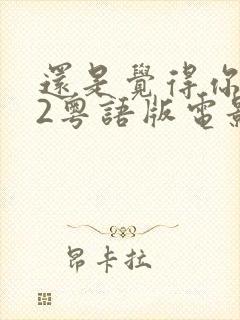 還是覺得你
2粵語版電影
昂卡拉